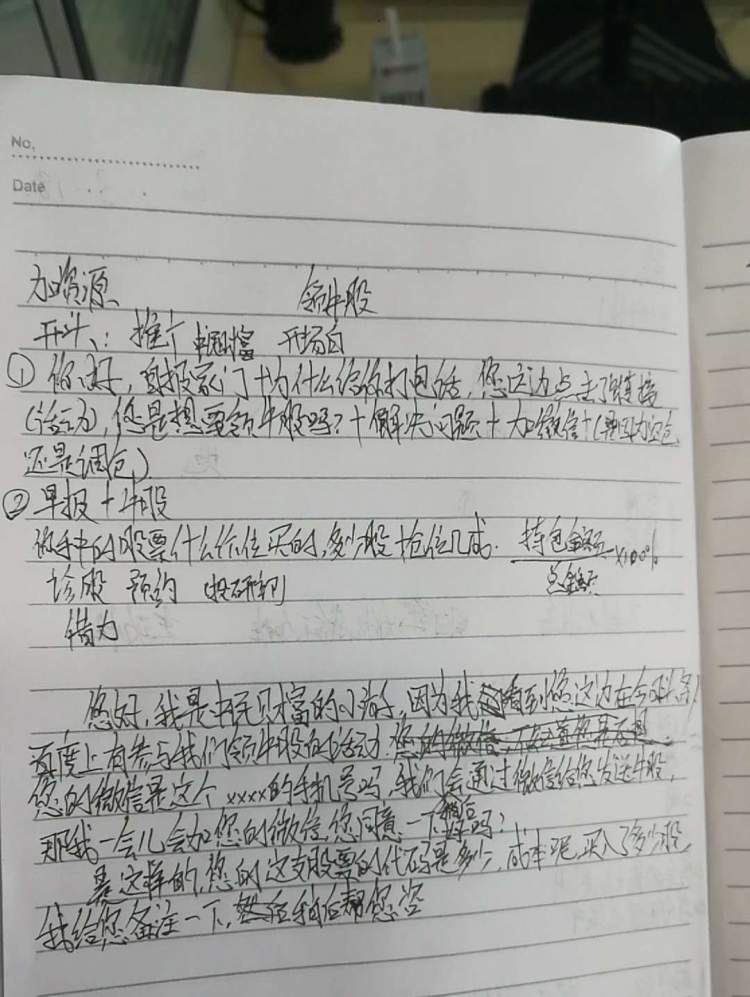 No.
Date
加资源 领牛股
开头：推介 中冠财富 开场白
① 你好，自报家门+为什么给你打电话，您这边点击了链接
(活动)，您是想要领牛股吗？+解决问题+加微信+(是因为空仓
还是调仓)
② 早报+牛股
你手中的股票什么价位买的，多少股 抢位几成. 持仓金额/总金额×100%
诊股 预约
借力
您好，我是 财富的小 ，因为我看到您这边在今日头条/
百度上有参与我们领牛股的活动
您的微信是这个xxxx的手机号吗，我们会通过微信给您发送牛股，
那我一会儿会加您的微信，您同意一下 吗？
是这样的，您的这支股票的代码是多少，成本呢，买入了多少股，
我给您备注一下， 稍后帮您咨